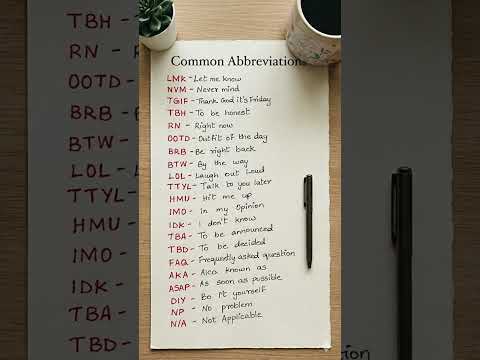 Common Abbreviations
LMK - Let me know
NVM - Never mind
TGIF - Thank God it's Friday
TBH - To be honest
RN - Right now
OOTD - Outfit of the day
BRB - Be right back
BTW - By the way
LOL - Laugh out Loud
TTYL - Talk to you later
HMU - Hit me up
IMO - In my Opinion
IDK - I don't know
TBA - To be announced
TBD - To be decided
FAQ - Frequently asked question
AKA - Also known as
ASAP - As soon as possible
DIY - Do It yourself
NP - No problem
N/A - Not Applicable